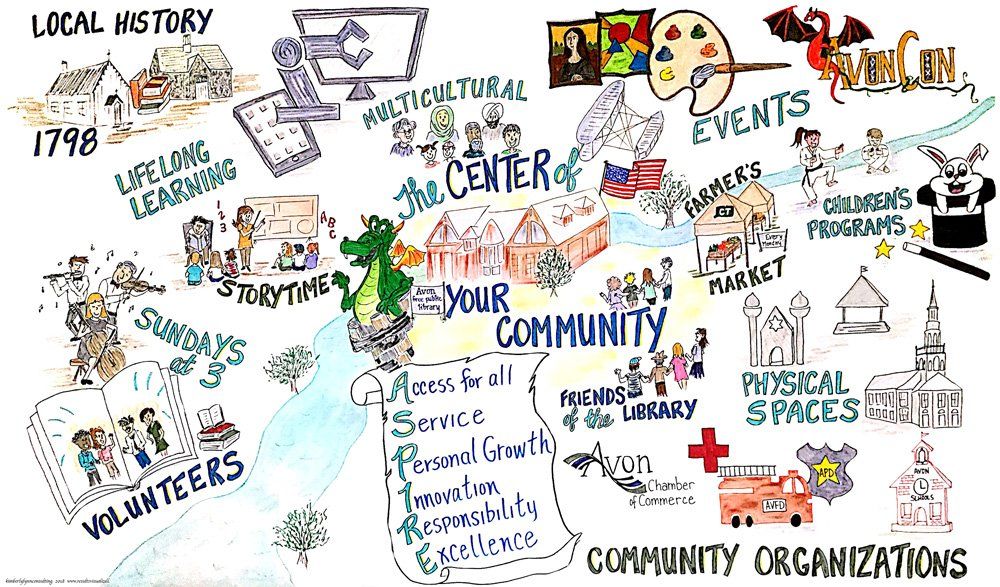 LOCAL HISTORY
1798
LIFELONG
LEARNING
MULTICULTURAL
AVONCON
EVENTS
The CENTER of
YOUR
COMMUNITY
1
2
3
A
B
C
STORYTIME
Avon
free public
library
FARMER'S
MARKET
CT
Every
Monday
CHILDREN'S
PROGRAMS
SUNDAYS
at 3
VOLUNTEERS
Access for all
Service
Personal Growth
Innovation
Responsibility
Excellence
FRIENDS
of the LIBRARY
PHYSICAL
SPACES
Avon
Chamber
of Commerce
AVFD
APD
AVON
SCHOOLS
COMMUNITY ORGANIZATIONS